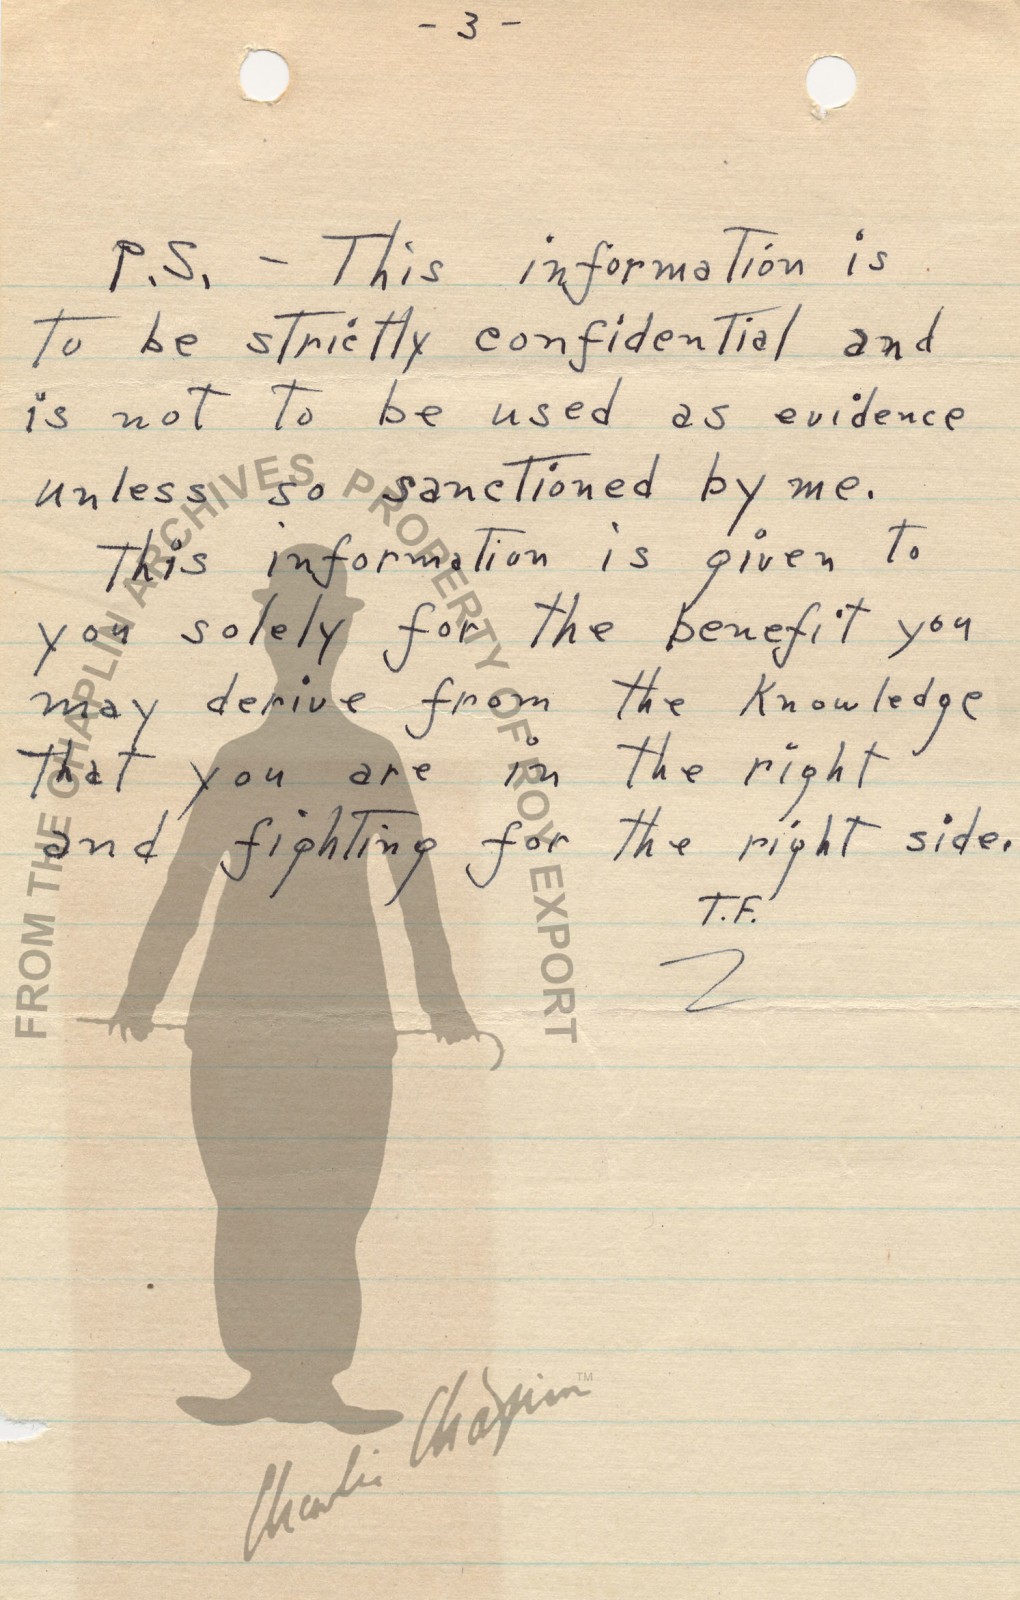 - 3 -
P.S. - This information is
to be strictly confidential and
is not to be used as evidence
unless so sanctioned by me.
This information is given to
you solely for the benefit you
may derive from the knowledge
that you are in the right
and fighting for the right side.
T.F.
FROM THE CHAPLIN ARCHIVES PROPERTY OF ROY EXPORT
Charlie Chaplin™